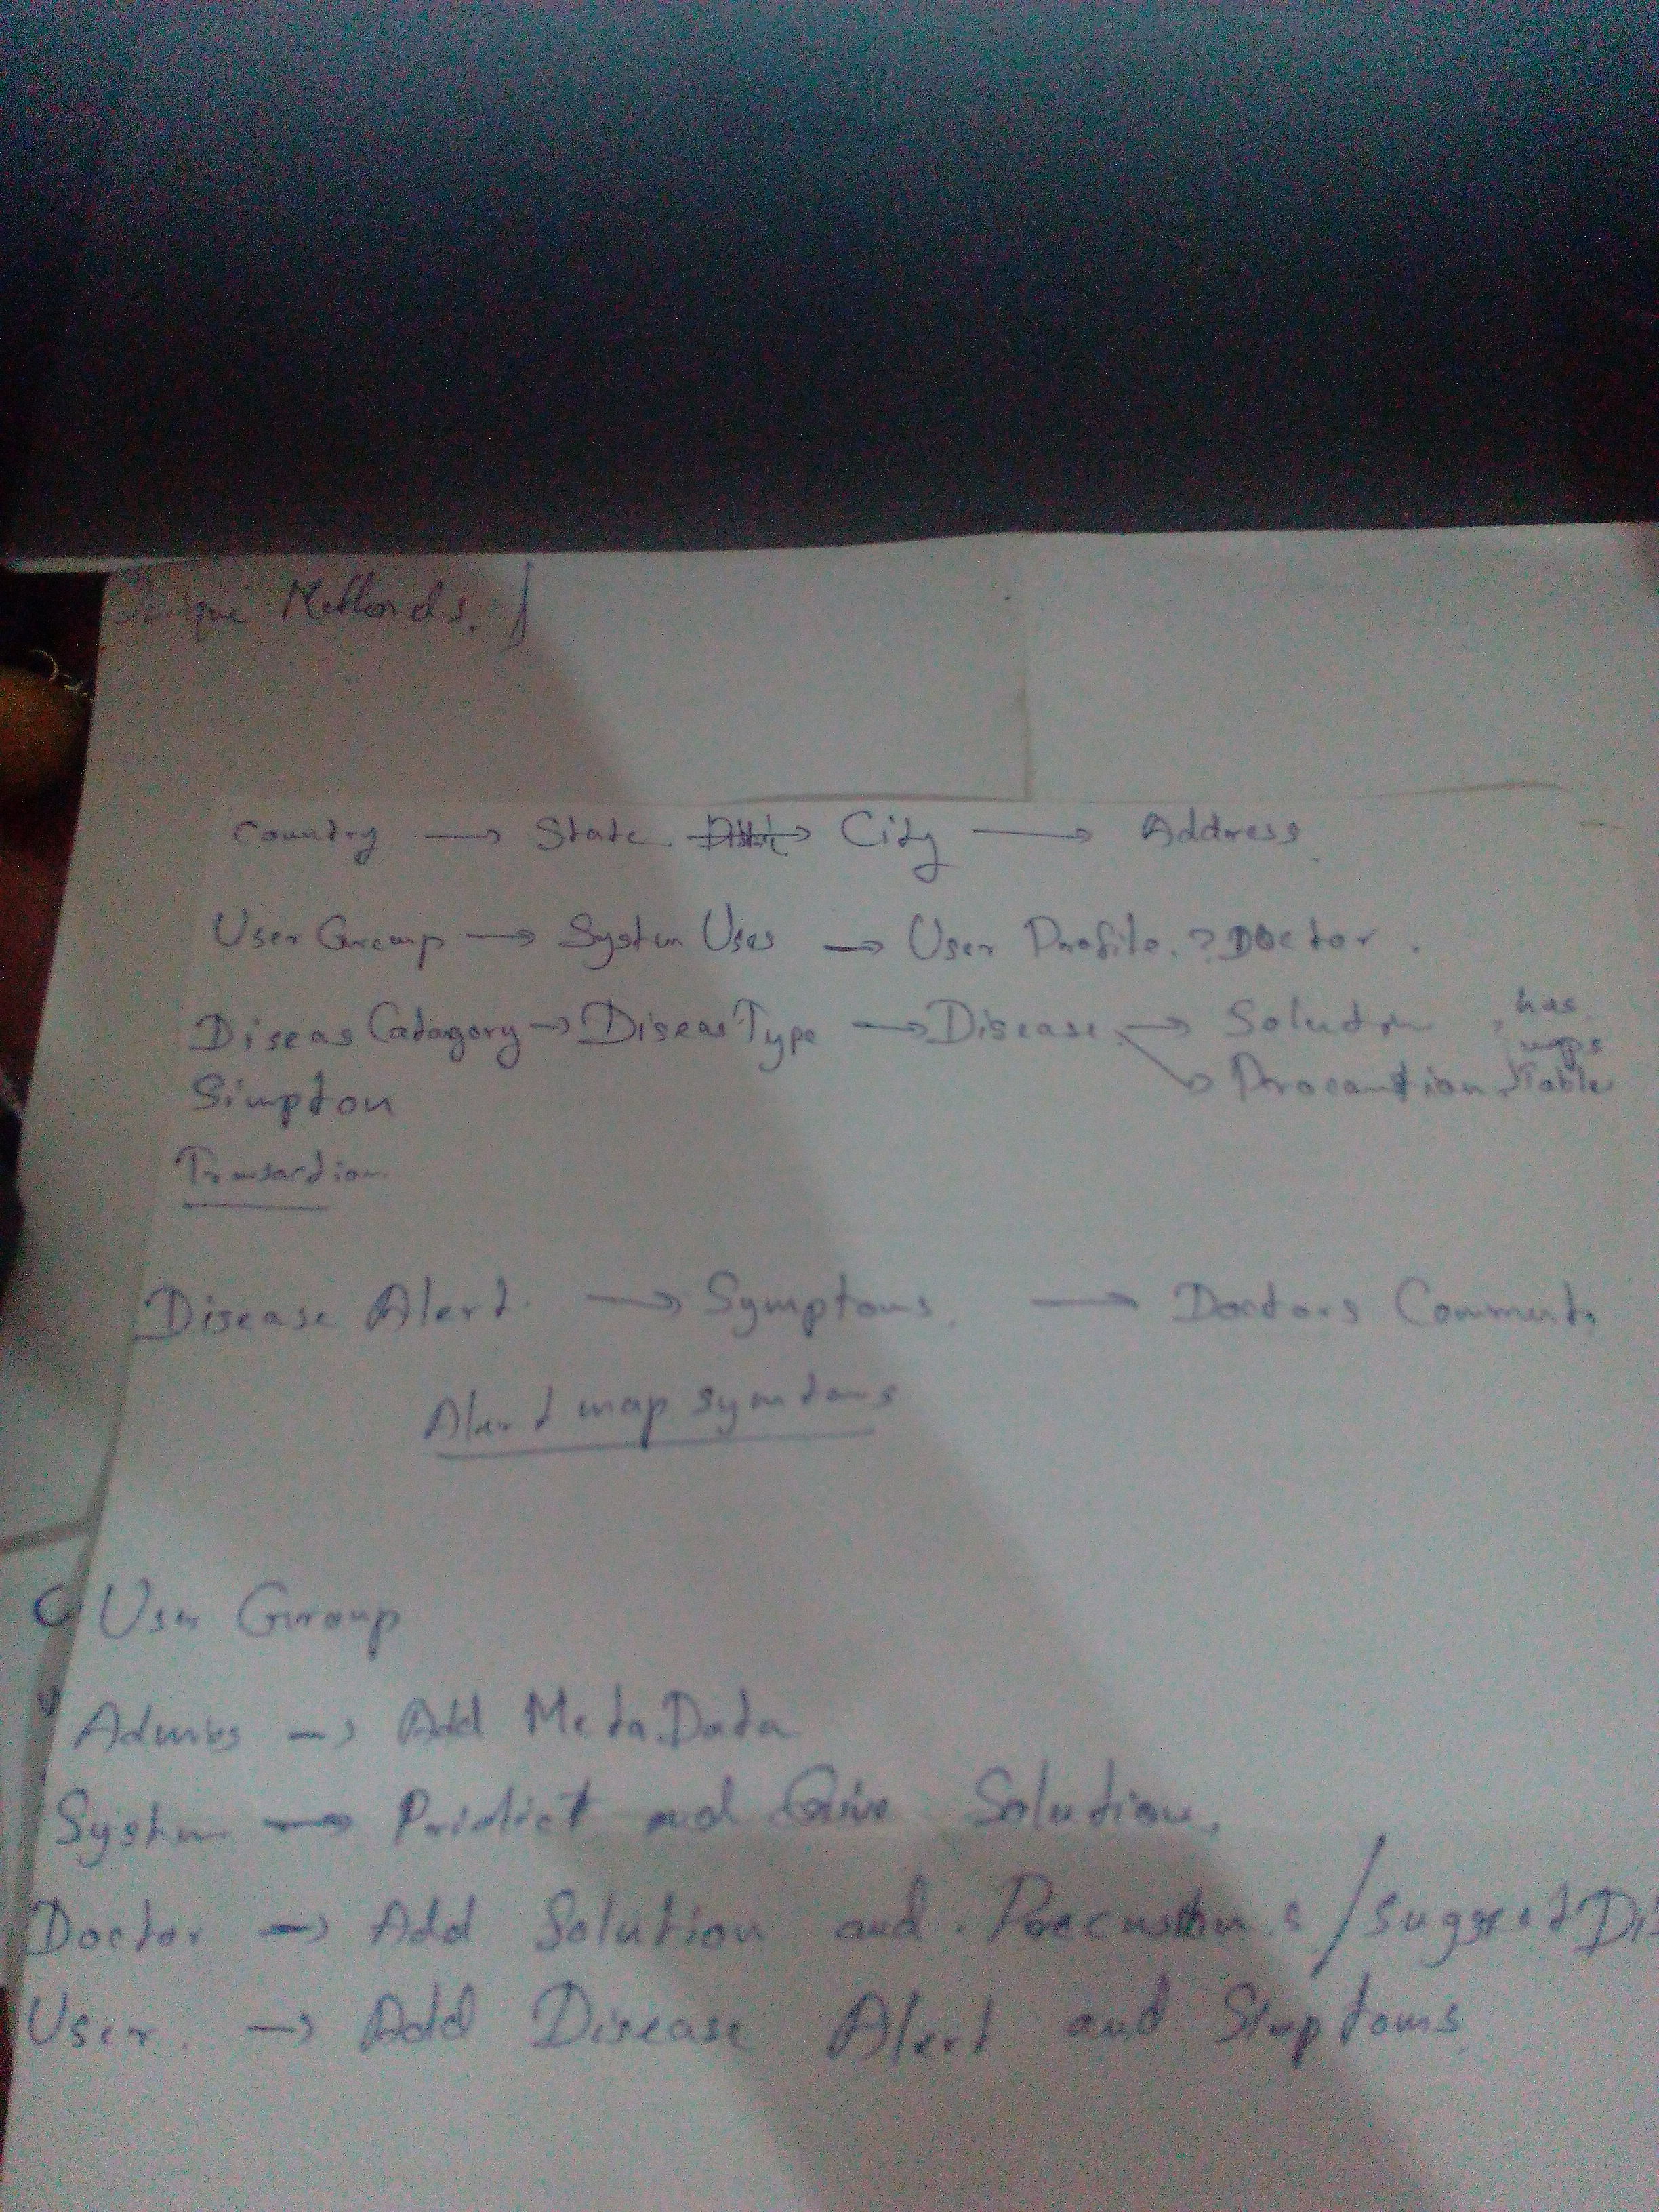 Unique Methods.
Country → State. → City → Address.
User Group → System Uses → User Profile. ? Doctor.
Diseas Cadagory → Diseas Type → Disease → Solution, has
maps
→ Precaution. Table
Simpton
Transaction
Disease Alert. → Symptoms. → Doctors Comments
Alert map symtoms
User Group
Admins → Add Meta Data
System → Pridict and Give Solution.
Doctor → Add Solution and. Precustions / suggest Dis
User. → Add Disease Alert and Simptoms